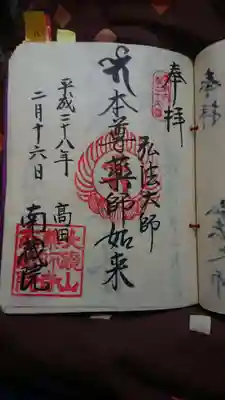 奉拝
弘法大師
本尊薬師如来
平成二十八年
二月十六日
高田
南蔵院